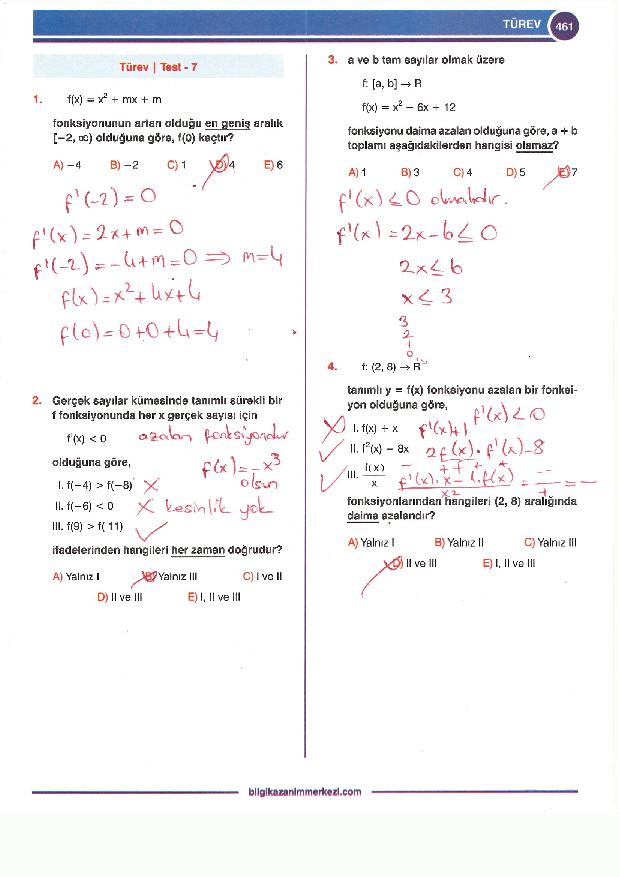 TÜREV 461
Türev | Test - 7
1. f(x) = x² + mx + m
fonksiyonunun artan olduğu en geniş aralık
[−2, ∞) olduğuna göre, f(0) kaçtır?
A) −4 B) −2 C) 1 D) 4 E) 6
f'(-2) = 0
f'(x) = 2x+m = 0
f'(-2) = -4+m = 0 ⇒ m=4
f(x) = x²+4x+4
f(0) = 0+0+4=4
2. Gerçek sayılar kümesinde tanımlı sürekli bir
f fonksiyonunda her x gerçek sayısı için
f'(x) < 0 azalan fonksiyondur
olduğuna göre, f(x) = -x³
olsun
I. f(−4) > f(−8) X
II. f(−6) < 0 X kesinlik yok
III. f(9) > f( 11) ✓
ifadelerinden hangileri her zaman doğrudur?
A) Yalnız I B) Yalnız III C) I ve II
D) II ve III E) I, II ve III
3. a ve b tam sayılar olmak üzere
f: [a, b] → R
f(x) = x² − 6x + 12
fonksiyonu daima azalan olduğuna göre, a + b
toplamı aşağıdakilerden hangisi olamaz?
A) 1 B) 3 C) 4 D) 5 E) 7
f'(x) ≤ 0 olmalıdır.
f'(x) = 2x-6 ≤ 0
2x ≤ 6
x ≤ 3
3
2
1
0
4. f: (2, 8) → R
tanımlı y = f(x) fonksiyonu azalan bir fonksi-
yon olduğuna göre, f'(x) < 0
I. f(x) + x f'(x)+1
II. f²(x) − 8x 2f(x).f'(x)-8
III. f(x)/x f'(x).x-1.f(x)/x² = -- / + = -
fonksiyonlarından hangileri (2, 8) aralığında
daima azalandır?
A) Yalnız I B) Yalnız II C) Yalnız III
D) II ve III E) I, II ve III
bilgikazanimmerkezi.com